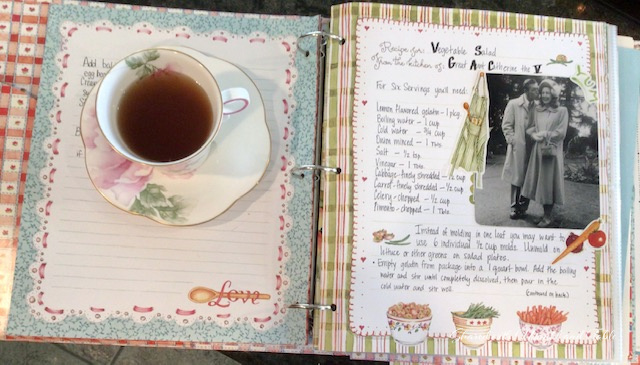 Add
egg
Love
Recipe for: Vegetable Salad
From the kitchen of: Great Aunt Catherine the V.
For Six Servings you'll need:
Lemon flavored gelatin - 1 pkg.
Boiling water - 1 cup
Cold water - 3/4 cup
Onion minced - 1 Tbls
Salt - 1/2 tsp.
Vinegar - 1 Tbls.
Cabbage-finely shredded - 1/2 cup
Carrot-finely shredded - 1/2 cup
Celery-chopped - 1/2 cup
Pimento-chopped - 1 Tbls
Instead of molding in one loaf you may want to
use 6 individual 1/2 cup molds. Unmold on
lettuce or other greens on salad plates.
• Empty gelatin from package into a 1 quart bowl. Add the boiling
water and stir until completely dissolved, then pour in the
cold water and stir well.
(continued on back)